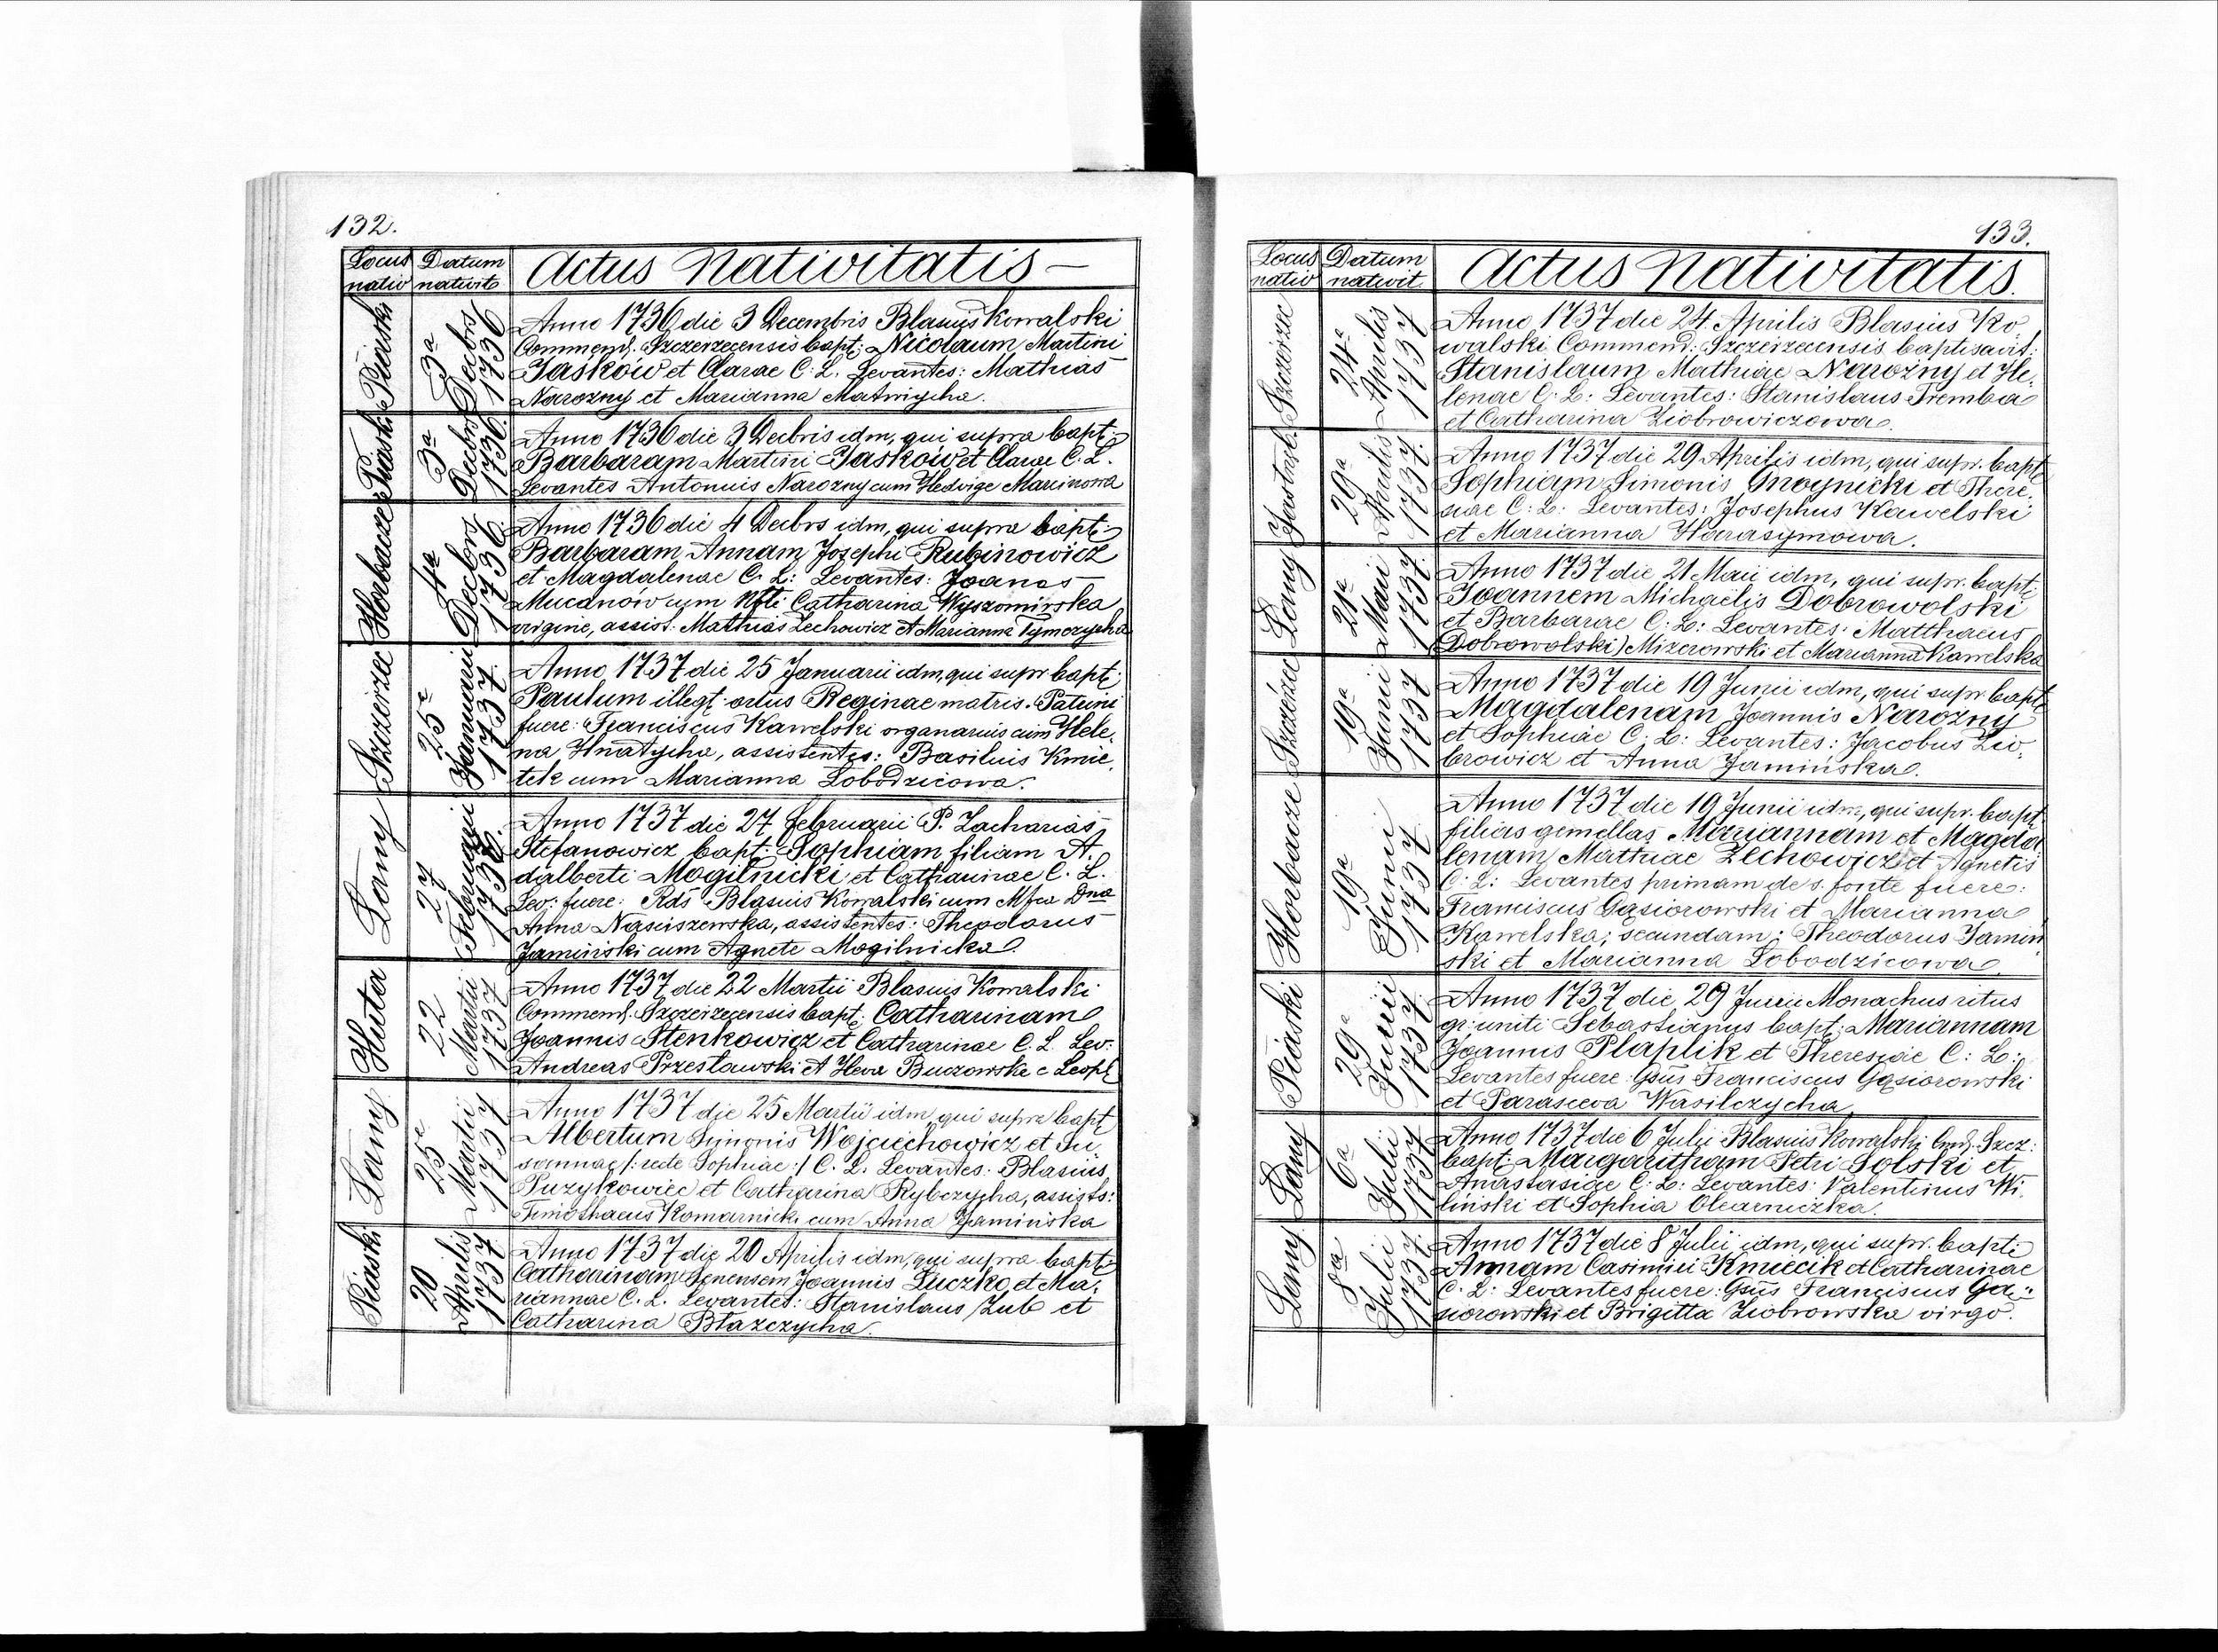 132.
Locus nativ
Datum nativit
Actus Nativitatis
Piaski
3a Decbrs 1736
Anno 1736 die 3 Decembris Blasius Kowalski
Commend. Szczerzecensis bapt: Nicolaum Martini
Jaskow et Clarae C. L. Levantes: Mathias
Narozny et Marianna Matwiycha.
Piaski
3a Decbrs 1736
Anno 1736 die 3 Decbris idm, qui supra bapt:
Barbaram Martini Jaskow et Clarae C. L.
Levantes Antonius Narozny cum Hedvige Marcinowa
Horbacze
4a Decbrs 1736.
Anno 1736 die 4 Decbrs idm, qui supra bapt:
Barbaram Annam Josephi Rubinowicz
et Magdalenae C. L: Levantes: Joanes
Mucanów cum Catharina Wyszomirska
virgine, assist: Mathias Zechowicz et Marianna Tymczycha
Szczerzec
25a Januarii 1737.
Anno 1737 die 25 Januarii idm, qui supr bapt:
Paulum illegt. ortus Reginae matris. Patrini
fuere: Franciscus Kawelski organarius cum Hele-
na Hnatycha, assistentes: Basilius Kmie-
tek cum Marianna Lobodzicowa.
Lany
27 Februarii 1737.
Anno 1737 die 27 februarii P. Zacharias
Stefanowicz bapt: Sophiam filiam A-
dalberti Mogilnicki et Catharinae C. L.
Lev: fuere: Rds Blasius Kowalski cum Mfca Dna
Anna Nasciszewska, assistentes: Theodorus
Jaminski cum Agnete Mogilnicka.
Huta
22 Martii 1737
Anno 1737 die 22 Martii Blasius Kowalski
Commend. Szczerzecensis bapt: Catharinam
Joannis Stenkowicz et Catharinae C. L. Lev:
Andreas Przesławski et Heva Buczowska c Leopl
Lany
25a Martii 1737
Anno 1737 die 25 Martii idm qui supra bapt
Albertum Simonis Wojciechowicz et Su-
sannae /: recte Sophiae :/ C. L. Levantes: Blasius
Puzykowiec et Catharina Rybczycha, assists:
Timothaeus Komarnicki cum Anna Jamińska
Piaski
20 Aprilis 1737
Anno 1737 die 20 Aprilis idm, qui supra bapt:
Catharinam Senensem Joannis Luczko et Ma-
riannae C. L. Levantes: Stanislaus Zub et
Catharina Błazczycha.
133.
Locus nativ
Datum nativit.
Actus Nativitatis.
Szczerzec
24a Aprilis 1737
Anno 1737 die 24 Aprilis Blasius Ko-
walski Commend: Szczerzecensis baptisavit:
Stanislaum Mathiae Narozny et He-
lenae C. L: Levantes: Stanislaus Tremba
et Catharina Ziobrowiczowa.
Jastrzb.
29a Aprilis 1737.
Anno 1737 die 29 Aprilis idm, qui supr. bapt
Sophiam Simonis Gnoynicki et There-
siae C: L: Levantes: Josephus Kawelski
et Marianna Harasymowa.
Lany
21a Maii 1737.
Anno 1737 die 21 Maii idm, qui supr. bapt:
Joannem Michaëlis Dobrowolski
et Barbarae C: L: Levantes: Matthaeus
(Dobrowolski) Mizerowski et Marianna Kawelska
Szczerzec
19a Junii 1737
Anno 1737 die 19 Junii idm, qui supr. bapt
Magdalenam Joannis Narozny
et Sophiae C: L: Levantes: Jacobus Zio-
browicz et Anna Jamińska.
Horbacze
19a Junii 1737
Anno 1737 die 19 Junii idm, qui supr. bapt
filias gemellas Mariannam et Magda
lenam Mathiae Zechowicz et Agnetis
C: L: Levantes primam de s. fonte fuere:
Franciscus Gąsiorowski et Marianna
Kawelska; secundam: Theodorus Jamin
ski et Marianna Lobodzicowa.
Piaski
29a Junii 1737
Anno 1737 die 29 Junii Monachus ritus
gr: uniti Sebastianus bapt: Mariannam
Joannis Płaplik et Theresiae C: L:
Levantes fuere: Gsus Franciscus Gąsiorowski
et Parasceva Wasilczycha
Lany
6a Julii 1737
Anno 1737 die 6 Julii Blasius Kowalski Cmd. Szcz:
bapt: Margaritham Petri Solski et
Anastasiae C: L: Levantes: Valentinus Wi-
liński et Sophia Olearniczka.
Lany
8a Julii 1737.
Anno 1737 die 8 Julii idm, qui supr. bapt:
Annam Casimiri Kmiecik et Catharinae
C. L: Levantes fuere: Gsus Franciscus Gą-
siorowski et Brigitta Ziobrowska virgo.